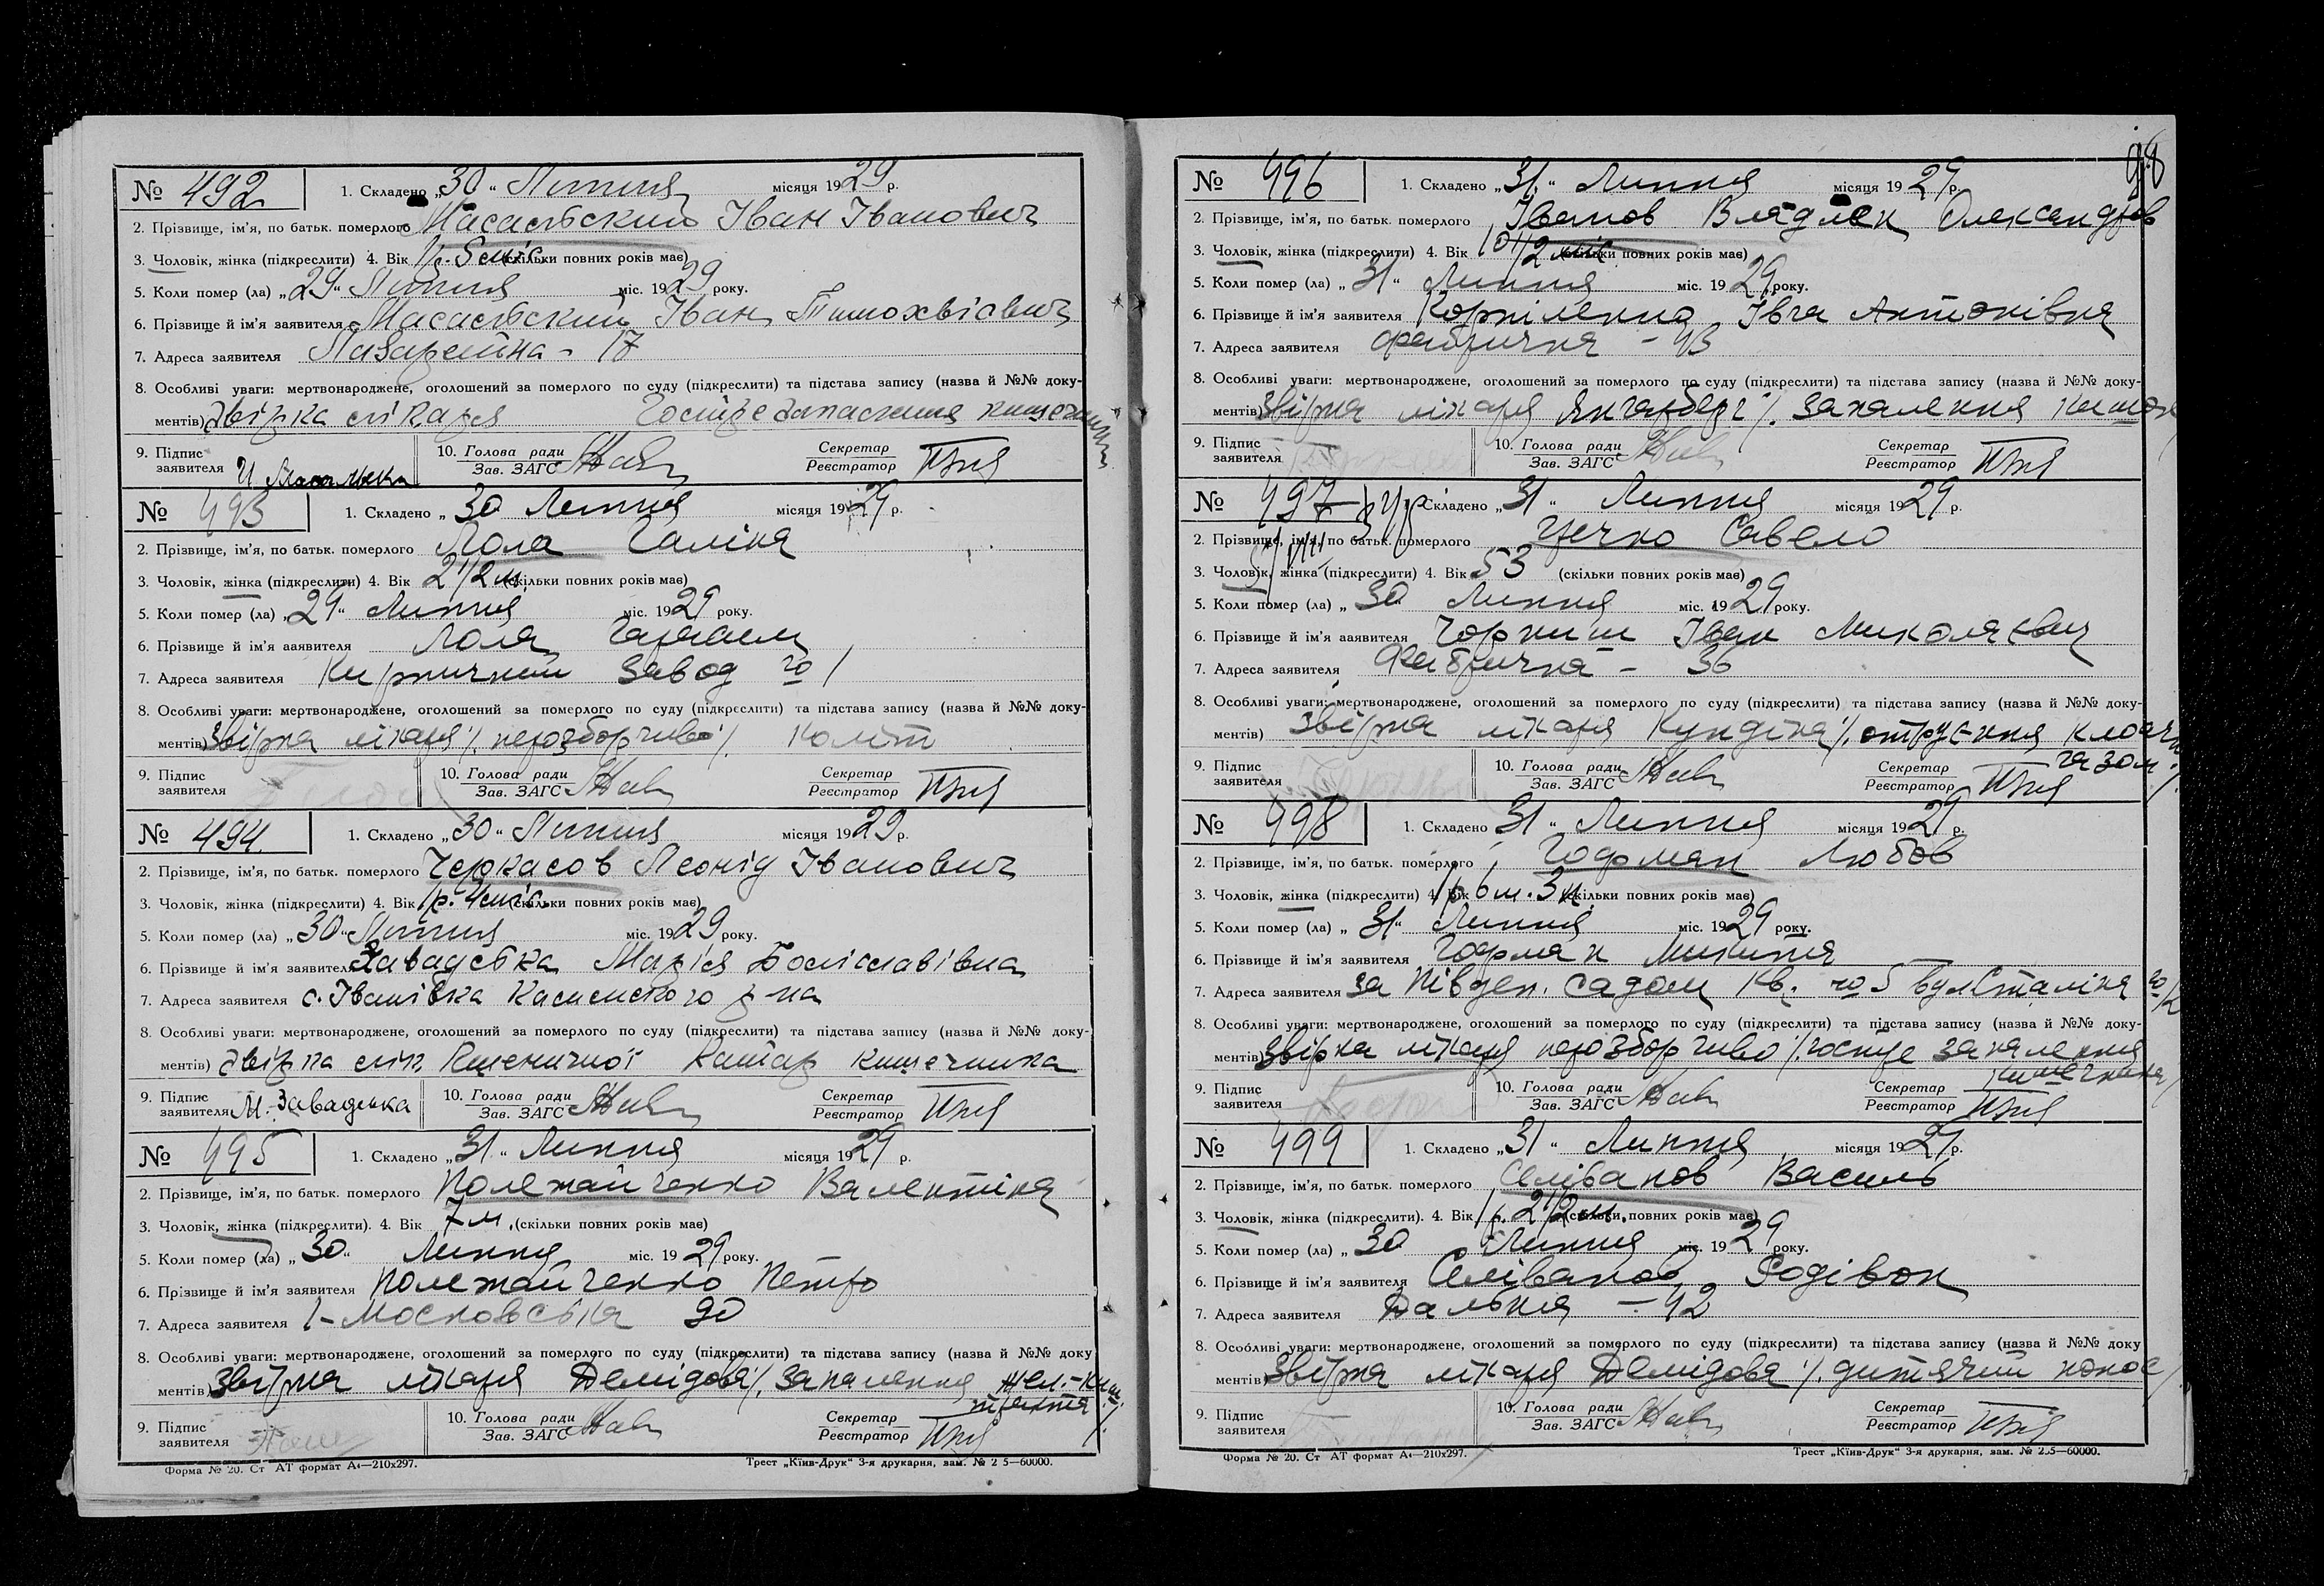 № 492 1. Складено „30“ Липня місяця 1929 р.
2. Прізвище, ім'я, по батьк. померлого Масальский Іван Іванович
3. Чоловік, жінка (підкреслити) 4. Вік 1 р. 5 міс. (скільки повних років має)
5. Коли помер (ла) „29“ Липня міс. 1929 року.
6. Прізвище й ім'я заявителя Масальский Іван Тимохвієвич
7. Адреса заявителя Лазаретна - 17
8. Особливі уваги: мертвонароджене, оголошений за померлого по суду (підкреслити) та підстава запису (назва й №№ доку-
ментів) Звірка лікаря Гостре запалення кишечника
9. Підпис заявителя И Масальска 10. Голова ради Зав. ЗАГС Секретар Реєстратор
№ 493 1. Складено „30 Липня місяця 1929 р.
2. Прізвище, ім'я, по батьк. померлого Лола Галіна
3. Чоловік, жінка (підкреслити) 4. Вік 2 1/2 м. (скільки повних років має)
5. Коли помер (ла) „29“ Липня міс. 1929 року.
6. Прізвище й ім'я заявителя Лола
7. Адреса заявителя Кирпичний завод № 1
8. Особливі уваги: мертвонароджене, оголошений за померлого по суду (підкреслити) та підстава запису (назва й №№ доку-
ментів) Звірка лікаря /нерозборчиво/. Коліт
9. Підпис заявителя 10. Голова ради Зав. ЗАГС Секретар Реєстратор
№ 494 1. Складено „30“ Липня місяця 1929 р.
2. Прізвище, ім'я, по батьк. померлого Черкасов Леонід Іванович
3. Чоловік, жінка (підкреслити) 4. Вік 1 р. 4 міс. (скільки повних років має)
5. Коли помер (ла) „30“ Липня міс. 1929 року.
6. Прізвище й ім'я заявителя Завадська Марія Болїславівна
7. Адреса заявителя с. Іванівка Касиенського р-на
8. Особливі уваги: мертвонароджене, оголошений за померлого по суду (підкреслити) та підстава запису (назва й №№ доку-
ментів) Звірка лік. Пшеничної Катар кишечника
9. Підпис заявителя М. Завадська 10. Голова ради Зав. ЗАГС Секретар Реєстратор
№ 495 1. Складено „31“ Липня місяця 1929 р.
2. Прізвище, ім'я, по батьк. померлого Полежайченко Валентіна
3. Чоловік, жінка (підкреслити). 4. Вік 7 м. (скільки повних років має)
5. Коли помер (ла) „30“ Липня міс. 1929 року.
6. Прізвище й ім'я заявителя Полежайченко Петро
7. Адреса заявителя 1-Московська 90
8. Особливі уваги: мертвонароджене, оголошений за померлого по суду (підкреслити) та підстава запису (назва й №№ доку
ментів) Звірка лікаря Демідова /. запалення жел.-киш.
тракта /.
9. Підпис заявителя 10. Голова ради Зав. ЗАГС Секретар Реєстратор
Форма № 20. Ст АТ формат А4—210х297. Трест „Київ-Друк“ 3-я друкарня, зам. № 2 5—60000.
98
№ 496 1. Складено „31.“ Липня місяця 1929 р.
2. Прізвище, ім'я, по батьк. померлого Іванов Владлен Олександров
3. Чоловік, жінка (підкреслити) 4. Вік 10 1/2 міс (скільки повних років має)
5. Коли помер (ла) „31“ Липня міс. 1929 року.
6. Прізвище й ім'я заявителя Корніленко Івга Антонівна
7. Адреса заявителя Фабрична - 93
8. Особливі уваги: мертвонароджене, оголошений за померлого по суду (підкреслити) та підстава запису (назва й №№ доку-
ментів) Звірка лікаря /. запалення кишок
9. Підпис заявителя 10. Голова ради Зав. ЗАГС Секретар Реєстратор
№ 497 1. Складено „31“ Липня місяця 1929 р.
2. Прізвище, ім'я, по батьк. померлого Цечко Савело
3. Чоловік, жінка (підкреслити) 4. Вік 53 (скільки повних років має)
5. Коли помер (ла) „30 Липня міс. 1929 року.
6. Прізвище й ім'я заявителя Чорниш Іван Миколаєвич
7. Адреса заявителя Фабрична - 36
8. Особливі уваги: мертвонароджене, оголошений за померлого по суду (підкреслити) та підстава запису (назва й №№ доку-
ментів) Звірка лікаря Кундіна /. отруєння клоачн
газом /.
9. Підпис заявителя 10. Голова ради Зав. ЗАГС Секретар Реєстратор
№ 498 1. Складено „31“ Липня місяця 1929 р.
2. Прізвище, ім'я, по батьк. померлого Гофман Любов
3. Чоловік, жінка (підкреслити) 4. Вік 1 р. 6 м. 3 н. (скільки повних років має)
5. Коли помер (ла) „31“ Липня міс. 1929 року.
6. Прізвище й ім'я заявителя Гофман Микита
7. Адреса заявителя за Півден. садом кв. № 5 вул Сталіна №
8. Особливі уваги: мертвонароджене, оголошений за померлого по суду (підкреслити) та підстава запису (назва й №№ доку-
ментів) Звірка лікаря нерозборчиво /. гостре запалення
кишечника /
9. Підпис заявителя 10. Голова ради Зав. ЗАГС Секретар Реєстратор
№ 499 1. Складено „31“ Липня місяця 1929 р.
2. Прізвище, ім'я, по батьк. померлого Селіванов Василь
3. Чоловік, жінка (підкреслити). 4. Вік 1 р. 2 1/2 м. (скільки повних років має)
5. Коли помер (ла) „30 Липня міс. 1929 року.
6. Прізвище й ім'я заявителя Селіванов Родівон
7. Адреса заявителя Дальня - 42
8. Особливі уваги: мертвонароджене, оголошений за померлого по суду (підкреслити) та підстава запису (назва й №№ доку
ментів) Звірка лікаря Демідова /. дитячий понос /
9. Підпис заявителя 10. Голова ради Зав. ЗАГС Секретар Реєстратор
Форма № 20. Ст АТ формат А4—210х297. Трест „Київ-Друк“ 3-я друкарня, зам. № 2.5—60000.